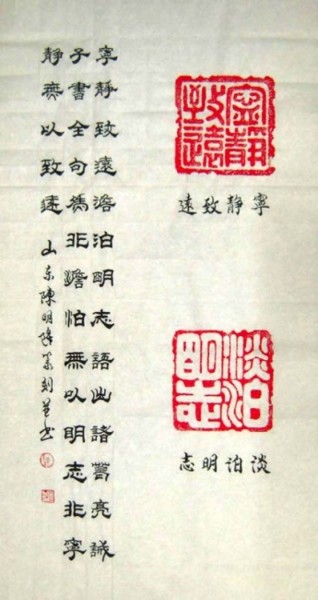 寧靜致遠
寧靜致遠
淡泊明志
淡泊明志
寧靜致遠澹泊明志語出諸葛亮誡
子書全句爲非澹泊無以明志非寧
靜無以致遠 山东陳明篆刻並书